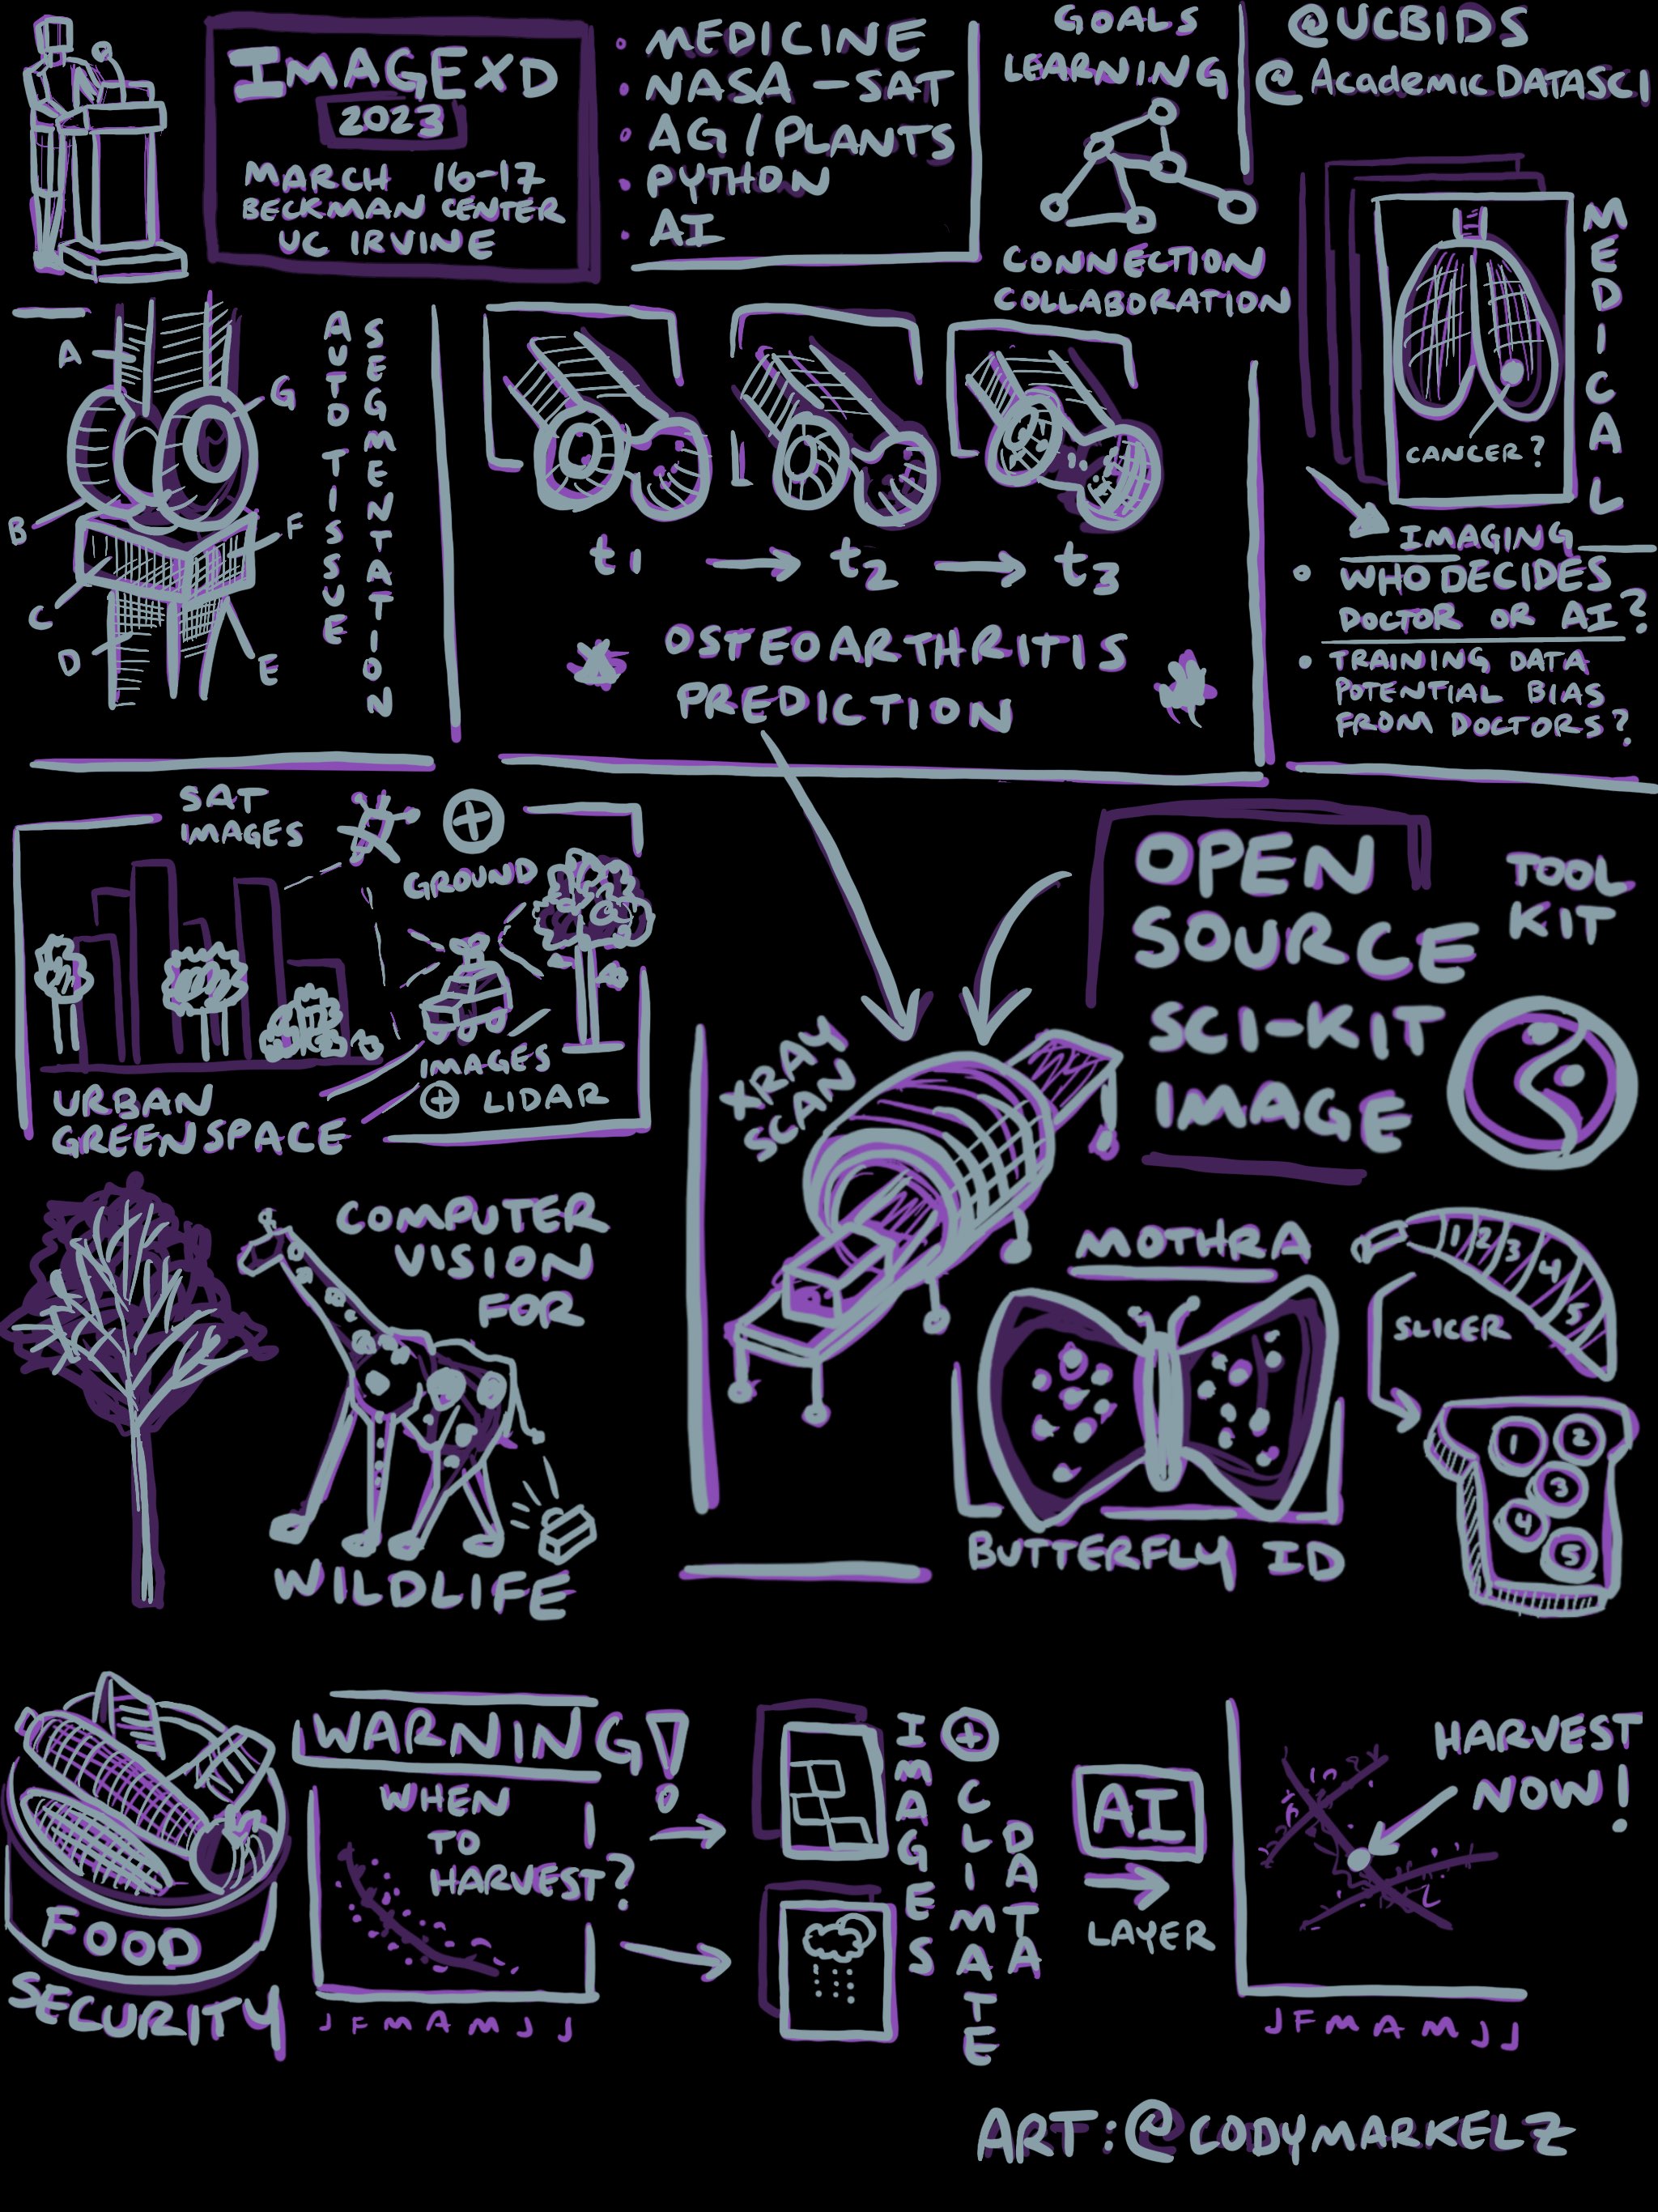 IMAGEXD
2023
MARCH 16-17
BECKMAN CENTER
UC IRVINE
• MEDICINE
• NASA - SAT
• AG / PLANTS
• PYTHON
• AI
GOALS
LEARNING
CONNECTION
COLLABORATION
@UCBIDS
@AcademicDATASCI
A
B
C
D
E
F
G
AUTO TISSUE
SEGMENTATION
t1 → t2 → t3
OSTEOARTHRITIS
PREDICTION
MEDICAL
CANCER?
IMAGING
• WHO DECIDES
DOCTOR OR AI?
• TRAINING DATA
POTENTIAL BIAS
FROM DOCTORS?
SAT
IMAGES
+
GROUND
IMAGES
+ LIDAR
URBAN
GREENSPACE
XRAY
SCAN
OPEN
SOURCE
SCI-KIT
IMAGE
TOOL
KIT
COMPUTER
VISION
FOR
WILDLIFE
MOTHRA
BUTTERFLY ID
1 2 3 4 5
SLICER
1 2
3
4
5
FOOD
SECURITY
WARNING!
WHEN
TO
HARVEST?
J F M A M J J
IMAGES
+ CLIMATE
DATA
AI
LAYER
HARVEST
NOW!
J F M A M J J
ART: @CODYMARKELZ